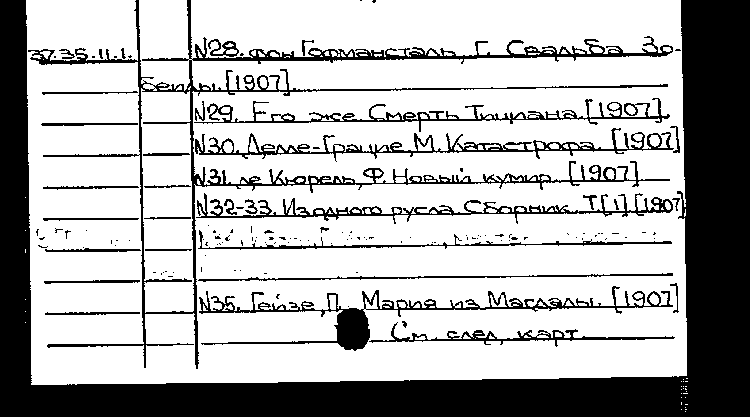 37.35.11.1. N28. фон Гофмансталь, Г. Свадьба Зо-
беиды. [1907].
N29. Его же Смерть Тициана. [1907].
N30. Делле-Грацие, М. Катастрофа. [1907]
N31. де Кюрель, Ф. Новый кумир. [1907]
N32-33. Из одного русла Сборник. Т. [1] [1907]
N35. Гейзе, П. Мария из Магдалы. [1907]
См. след. карт.